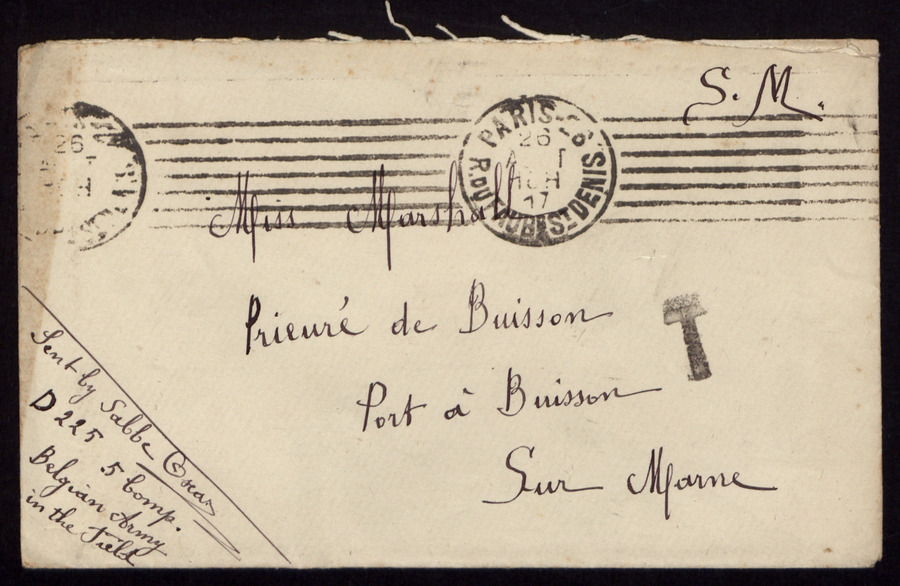 S. M.
PARIS-26
R. DU FAUBG ST DENIS
26
17
26
Miss Marshall
Prieuré de Buisson
Port à Buisson
Sur Marne
T
Sent by Sabbe Oscar
D 225 5 Comp.
Belgian Army
in the Field